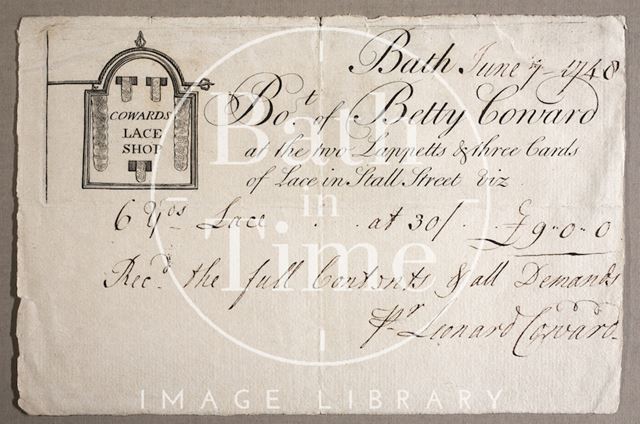 COWARDS
LACE
SHOP
Bath June 7 1748
Bot of Betty Coward
at the two Lappetts & three Cards
of Lace in Stall Street Viz
6 Yds Lace at 30/ £9-0-0
Recd the full Contents & all Demands
Pr Leonard Coward
Bath
in
Time
IMAGE LIBRARY